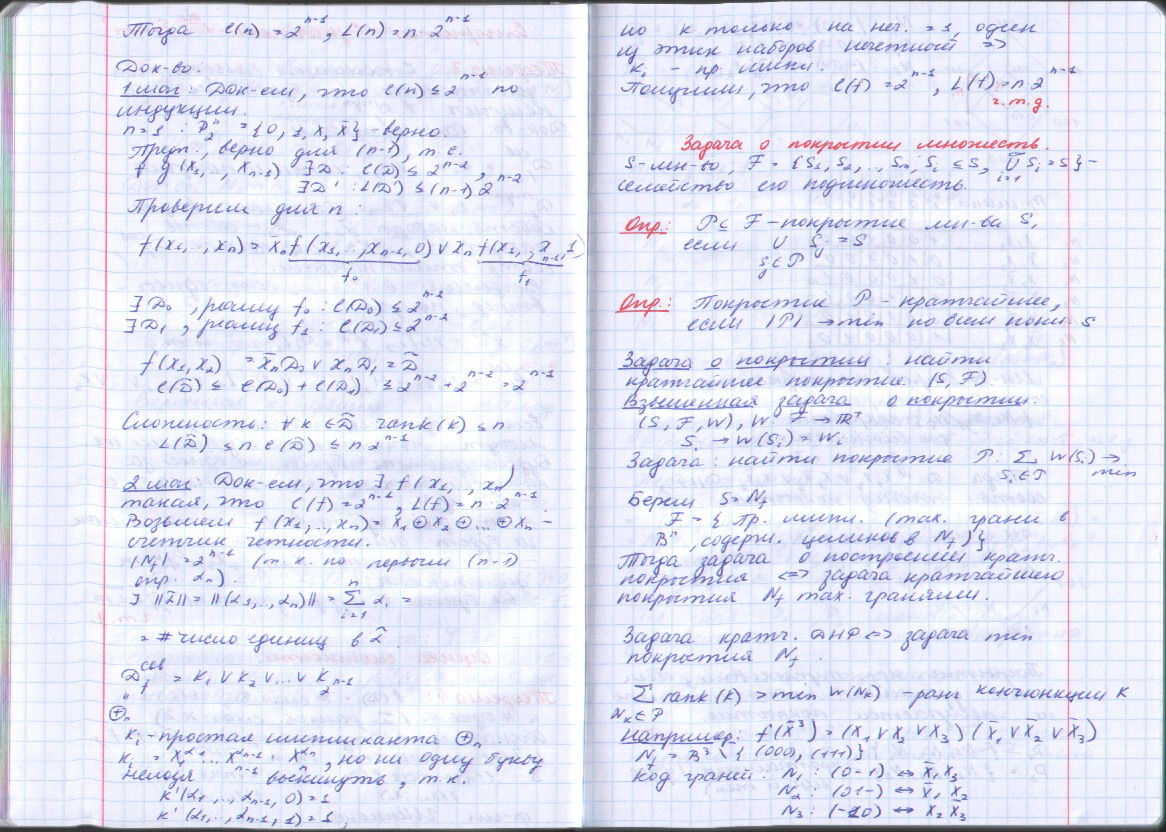 Тогда l(n) = 2^{n-1}, L(n) = n·2^{n-1}
Док-во:
1 шаг: Док-ем, что l(n) ≤ 2^{n-1} по
индукции.
n=1 : P_2^n = {0, 1, x, x̄} - верно
Предп., верно для (n-1), т.е.
∀ g(x_1, , x_{n-1}) ∃ D: l(D) ≤ 2^{n-2},
∃ D': L(D') ≤ (n-1) 2^{n-2}
Проверим для n:
f(x_1, .., x_n) = x̄_n f(x_1, .., x_{n-1}, 0) ∨ x_n f(x_1, , x_{n-1}, 1)
f_0 f_1
∃ D_0, реализ f_0 : l(D_0) ≤ 2^{n-2}
∃ D_1, реализ f_1 : l(D_1) ≤ 2^{n-2}
f(x_1, x_n) = x̄_n D_0 ∨ x_n D_1 = D̃
l(D̃) ≤ l(D_0) + l(D_1) ≤ 2^{n-2} + 2^{n-2} = 2^{n-1}
Сложность: ∀ k ∈ D̃ rank(k) ≤ n
L(D̃) ≤ n l(D̃) ≤ n 2^{n-1}
2 шаг: Док-ем, что ∃ f(x_1, , x_n)
такая, что l(f) = 2^{n-1}, L(f) = n·2^{n-1}.
Возьмем f(x_1, .., x_n) = x_1 ⊕ x_2 ⊕ ... ⊕ x_n -
счетчик четности.
|N_f| = 2^{n-1} (т.к. по первым (n-1)
опр. α_n).
∃ ||α̃|| = ||(α_1, .., α_n)|| = Σ_{i=1}^n α_i =
= # число единиц в α̃
D_f^{сов} = K_1 ∨ K_2 ∨ ... ∨ K_{2^{n-1}}
"
⊕_n
K_i - простая импликанта ⊕_n
K_i = x_1^{α_1} ... x_{n-1}^{α_{n-1}} · x_n^{α_n}, но ни одну букву
нельзя выкинуть, т.к.
K'(α_1, .., α_{n-1}, 0) = 1
K'(α_1, .., α_{n-1}, 1) = 1,
но K только на неч. = 1, один
из этих наборов нечетной =>
K_i - пр. импл.
Получили, что l(f) = 2^{n-1}, L(f) = n 2^{n-1}
ч.т.д.
Задача о покрытии множеств.
S - мн-во, F = {S_1, S_2, .., S_n, S_i ⊆ S, ∪_{i=1}^n S_i = S} -
семейство его подмножеств.
Опр.: P ⊆ F - покрытие мн-ва S,
если ∪ S_i = S
S_i ∈ P
Опр.: Покрытие P - кратчайшее,
если |P| → min по всем покр. S
Задача о покрытии: найти
кратчайшее покрытие (S, F).
Взвешенная задача о покрытии:
(S, F, W), W: F → R^+
S_i → W(S_i) = W_i
Задача: найти покрытие P: Σ_{S_i ∈ P} W(S_i) → min
Берем S = N_f
F = { Пр. импл. (max. грани в
B^n, содерж. целиков в N_f)}
Тогда задача о построении кратч.
покрытия <=> задача кратчайшего
покрытия N_f max. гранями.
Задача кратч. ДНФ <=> задача min
покрытия N_f.
Σ_{N_k ∈ P} rank(K) > min W(N_k) - ранг конъюнкции K
Например: f(x̃^3) = (x_1 ∨ x_2 ∨ x_3) (x̄_1 ∨ x̄_2 ∨ x̄_3)
N_f = B^3 \ { (000), (111)}
Код граней: N_1 : (0-1) ↔ x̄_1 x_3
N_2 : (01-) ↔ x̄_1 x_2
N_3 : (-10) ↔ x_2 x̄_3